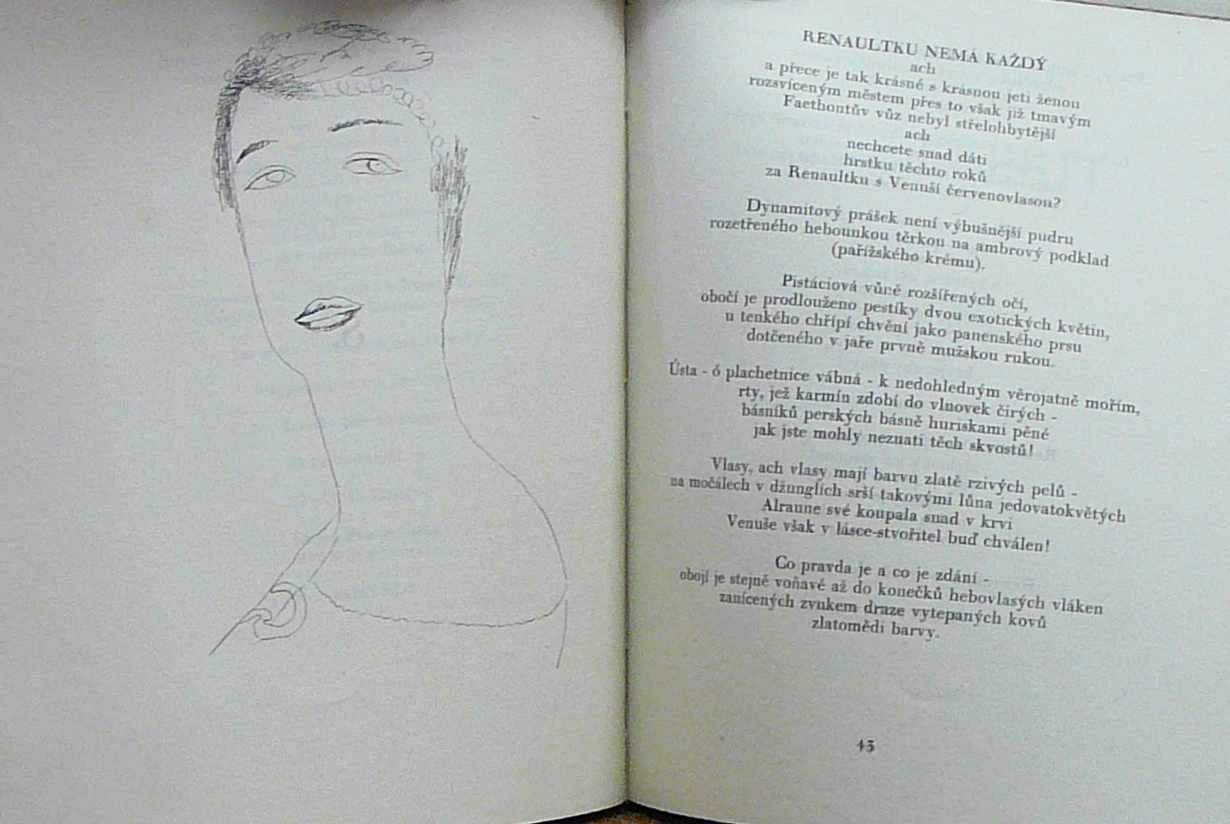 RENAULTKU NEMÁ KAŽDÝ
ach
a přece je tak krásné s krásnou jeti ženou
rozsvíceným městem přes to však již tmavým
Faethontův vůz nebyl střelohbytější
ach
nechcete snad dáti
hrstku těchto roků
za Renaultku s Venuší červenovlasou?
Dynamitový prášek není výbušnější pudru
rozetřeného hebounkou těrkou na ambrový podklad
(pařížského krému).
Pistáciová vůně rozšířených očí,
obočí je prodlouženo pestíky dvou exotických květin,
u tenkého chřípí chvění jako panenského prsu
dotčeného v jaře prvně mužskou rukou.
Ústa - ó plachetnice vábná - k nedohledným věrojatně mořím,
rty, jež karmín zdobí do vlnovek čirých -
básníků perských básně huriskami pěné
jak jste mohly neznati těch skvostů!
Vlasy, ach vlasy mají barvu zlatě rzivých pelů -
na močálech v džunglích srší takovými lůna jedovatokvětých
Alraune své koupala snad v krvi
Venuše však v lásce-stvořitel buď chválen!
Co pravda je a co je zdání -
obojí je stejně voňavé až do konečků hebovlasých vláken
zanícených zvukem draze vytepaných kovů
zlatomědi barvy.
43